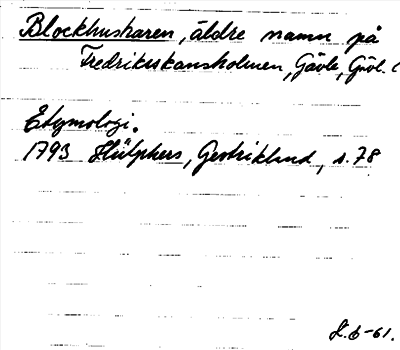 Blockhusharen, äldre namn på
Fredrikskansholmen, Gävle, Gävl. l
Etymologi.
1793 Hülphers, Gestrikland, s. 78
L. 6-61.